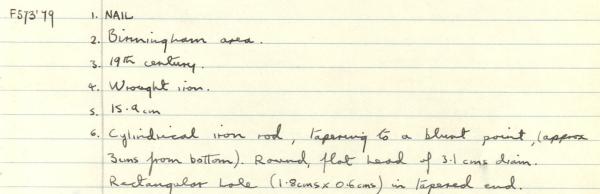 FS73'79 1. NAIL
2. Birmingham area.
3. 19th century.
4. Wrought iron.
5. 15.9cm
6. Cylindrical iron rod, tapering to a blunt point, (approx
3cms from bottom). Round flat head of 3.1 cms diam.
Rectangular hole (1.8cms x 0.6cms) in tapered end.